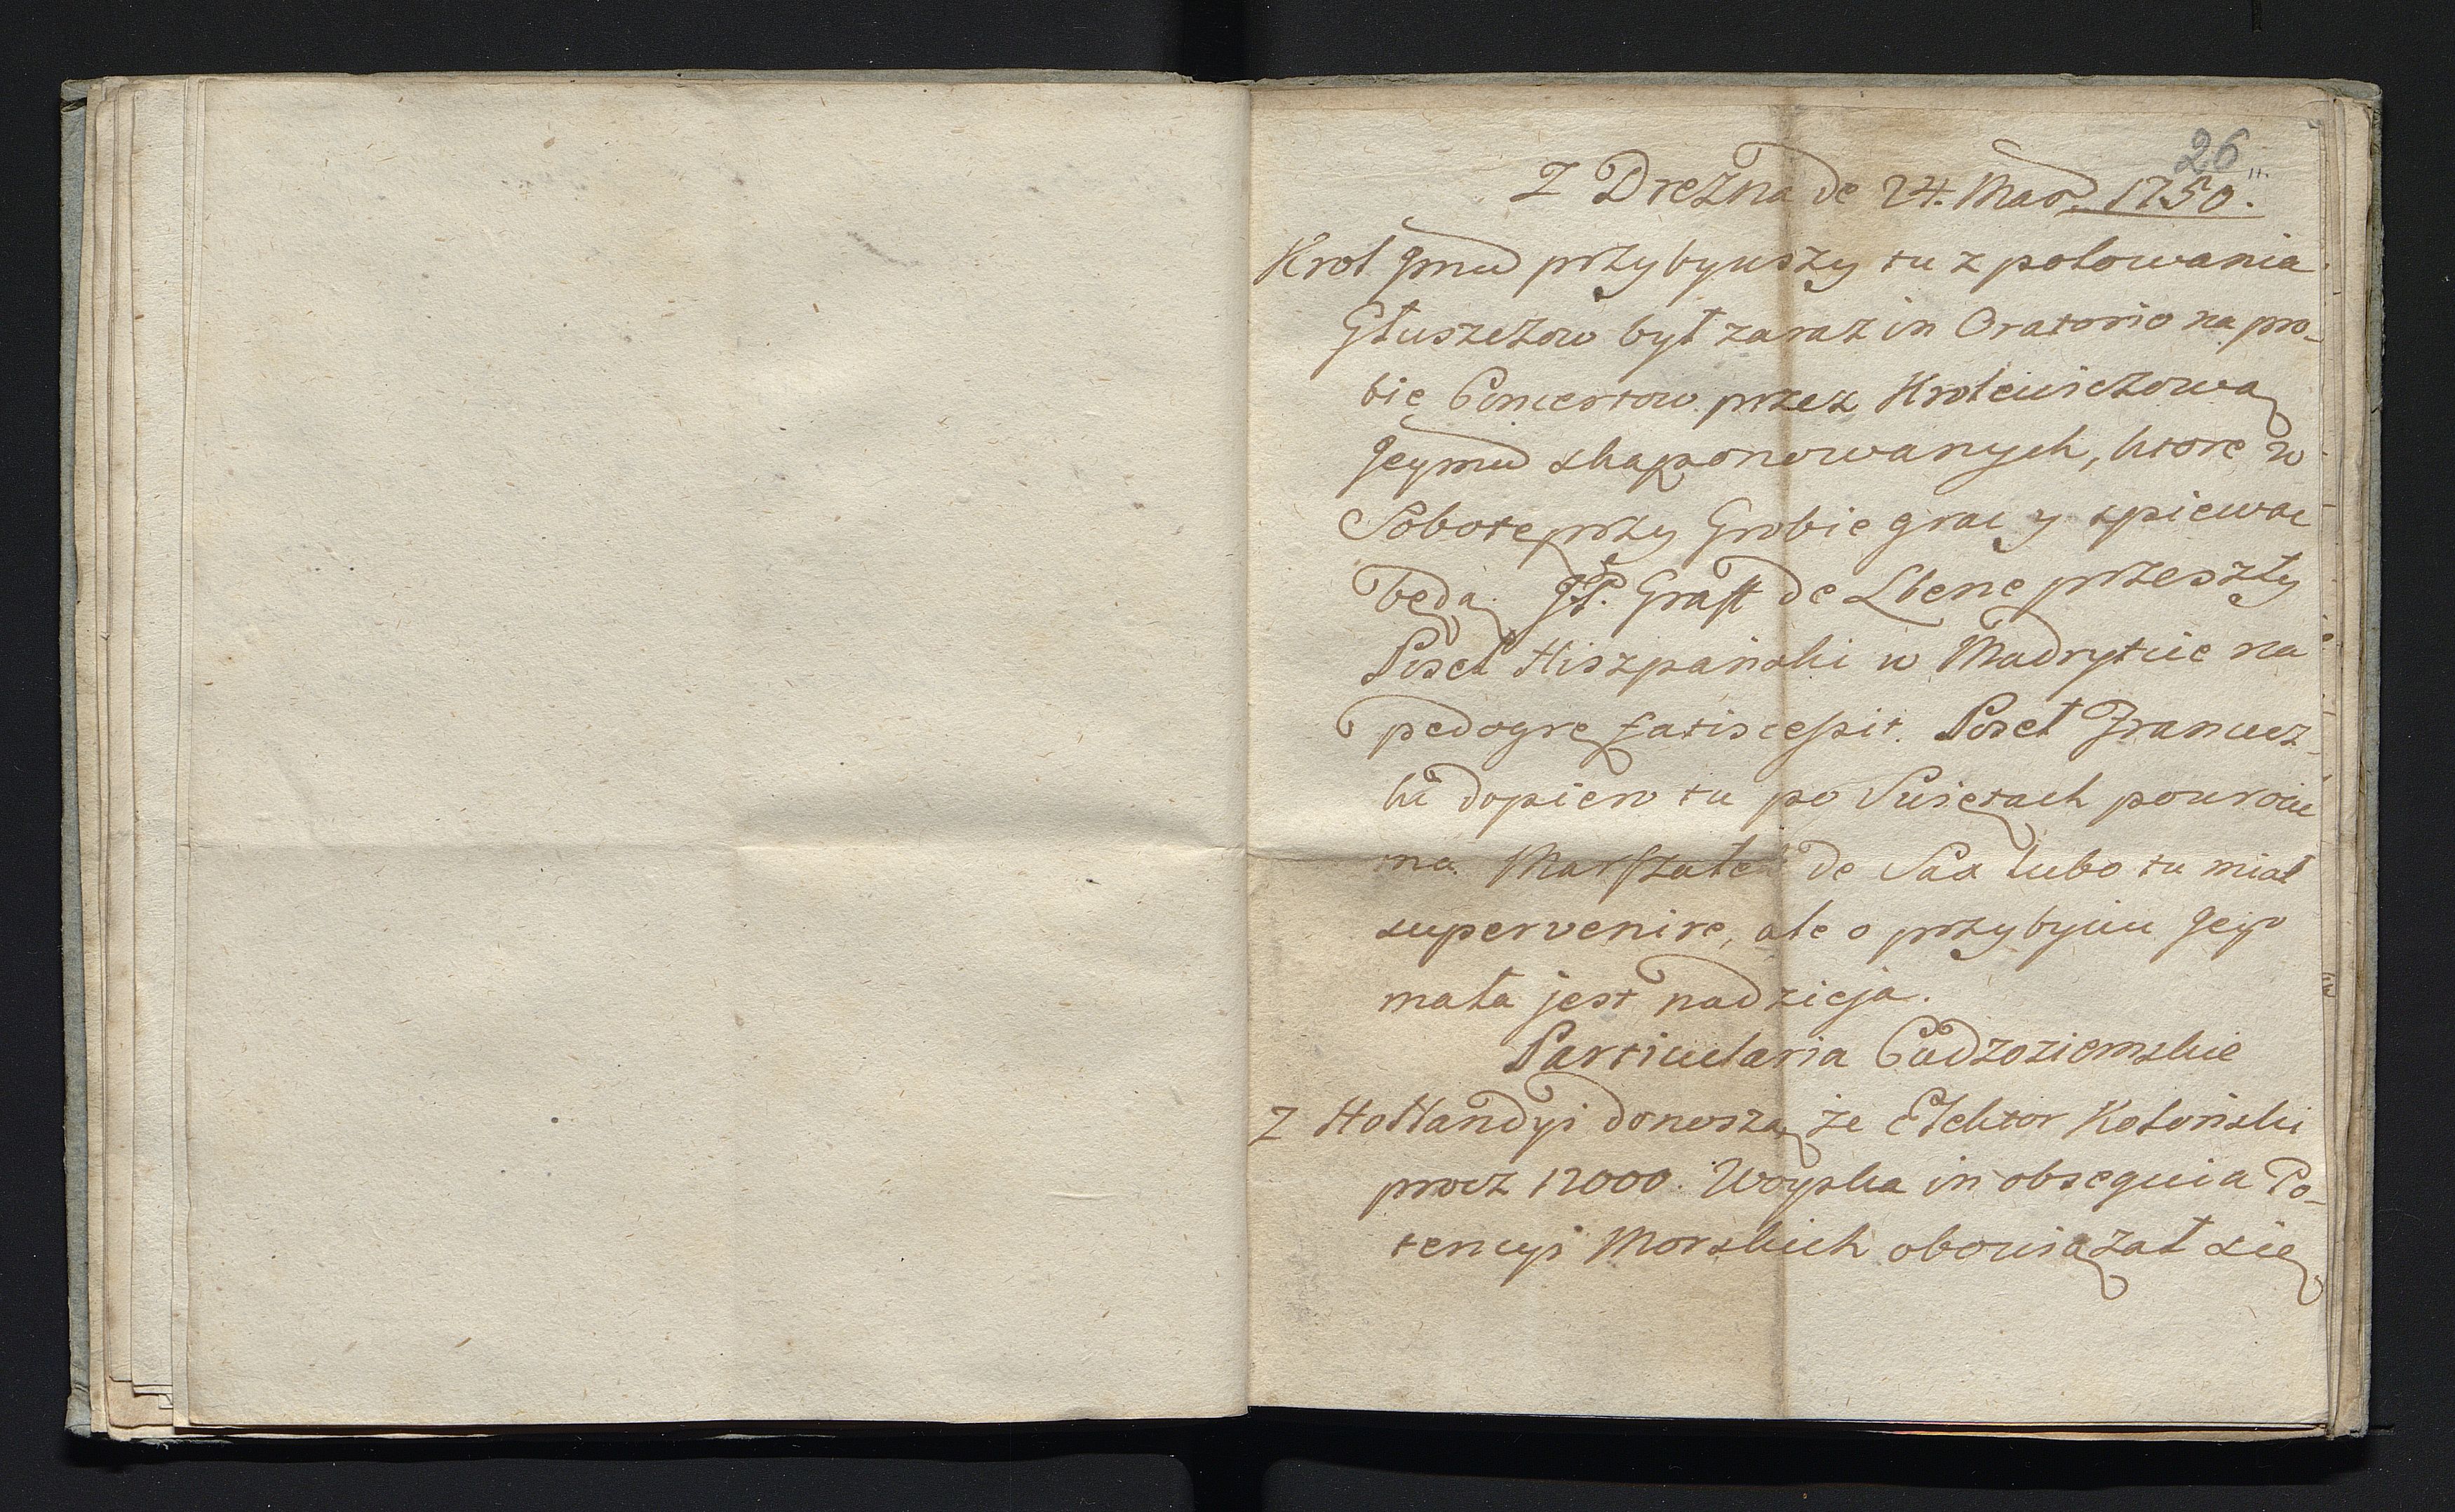 26
Z Drezna de 24. Mar. 1750.
Krol Jmć przybywszy tu z polowania
Głuszczow był zaraz in Oratorio na pro-
bie Concertow przez Krolewiczową
Jeymć skaponowanych, ktore w
Sobotę przy Grobie grac y spiewac
będą. JP. Graff de przeszły
Poseł Hiszpański w Madrytcie na
pedogrę Poseł Francuz-
ki dopiero tu po Swiętach powroci
ma. Marszałek de Sax lubo tu miał
supervenire, ale o przybyciu Jego
mała jest nadzieja.
Particularia Cudzoziemskie
Z Hollandyi donoszą że Elektor Koloński
procz 12000. Woyska in obsequia Po-
tencyi Morskich obowiązał się